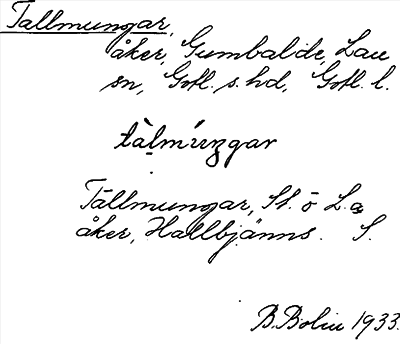 Tallmungar,
åker, Gumbalde, Lau
sn, Gotl. s. hd, Gotl. l.
tàlmúŋgar
Tallmungar, St. o L.
åker, Hallbjänns. S.
B. Bolin 1933.